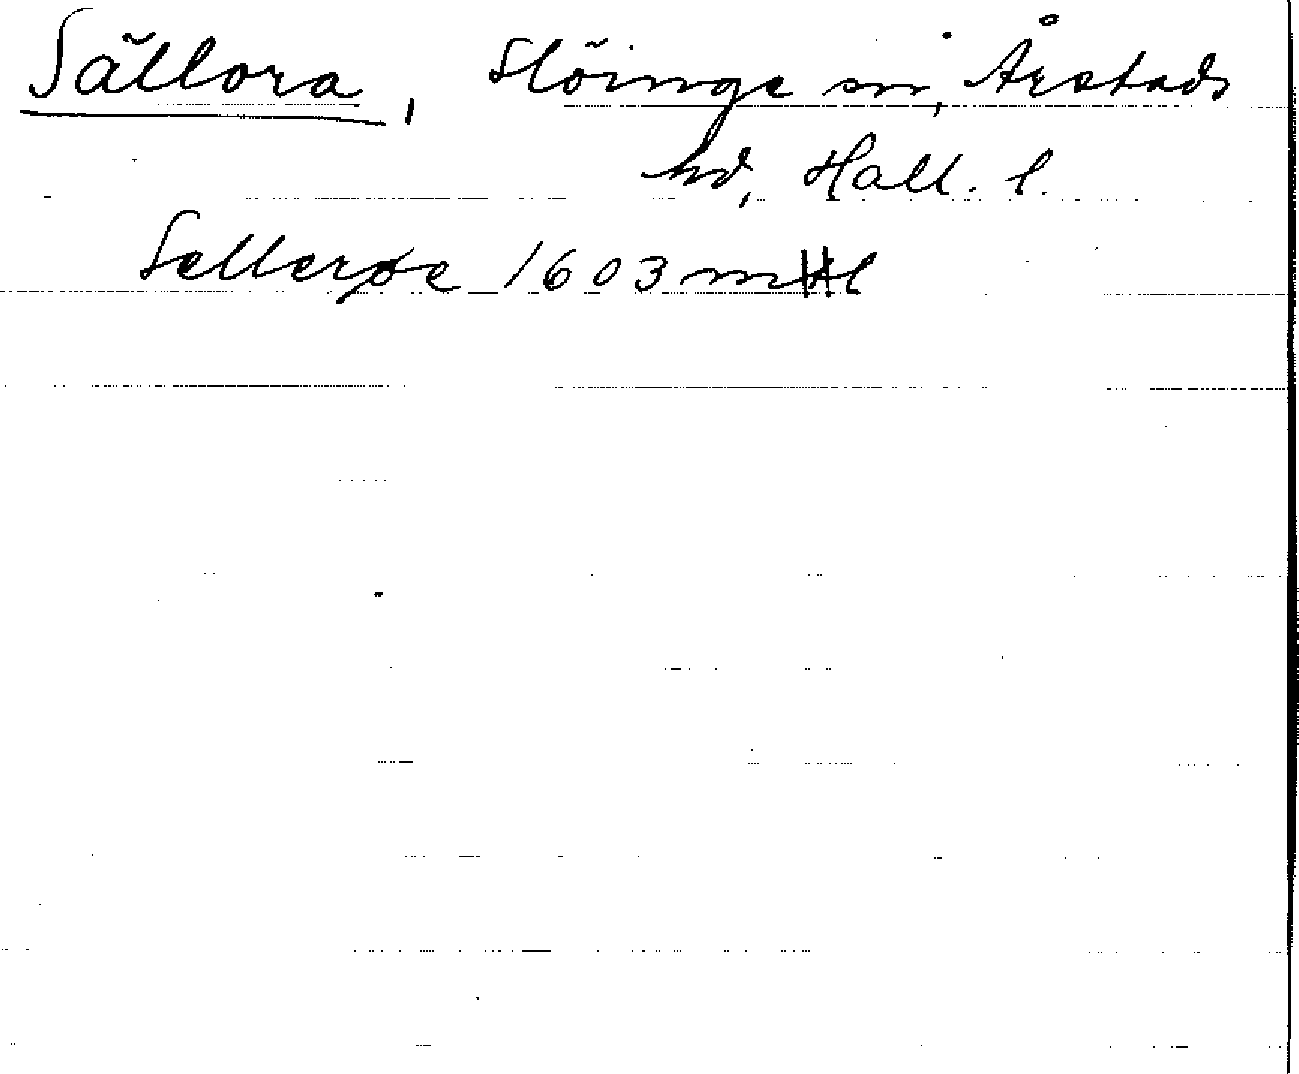 Sällora, Slöinge sn, Årstads
hd, Hall. l.
Sellerøe 1603